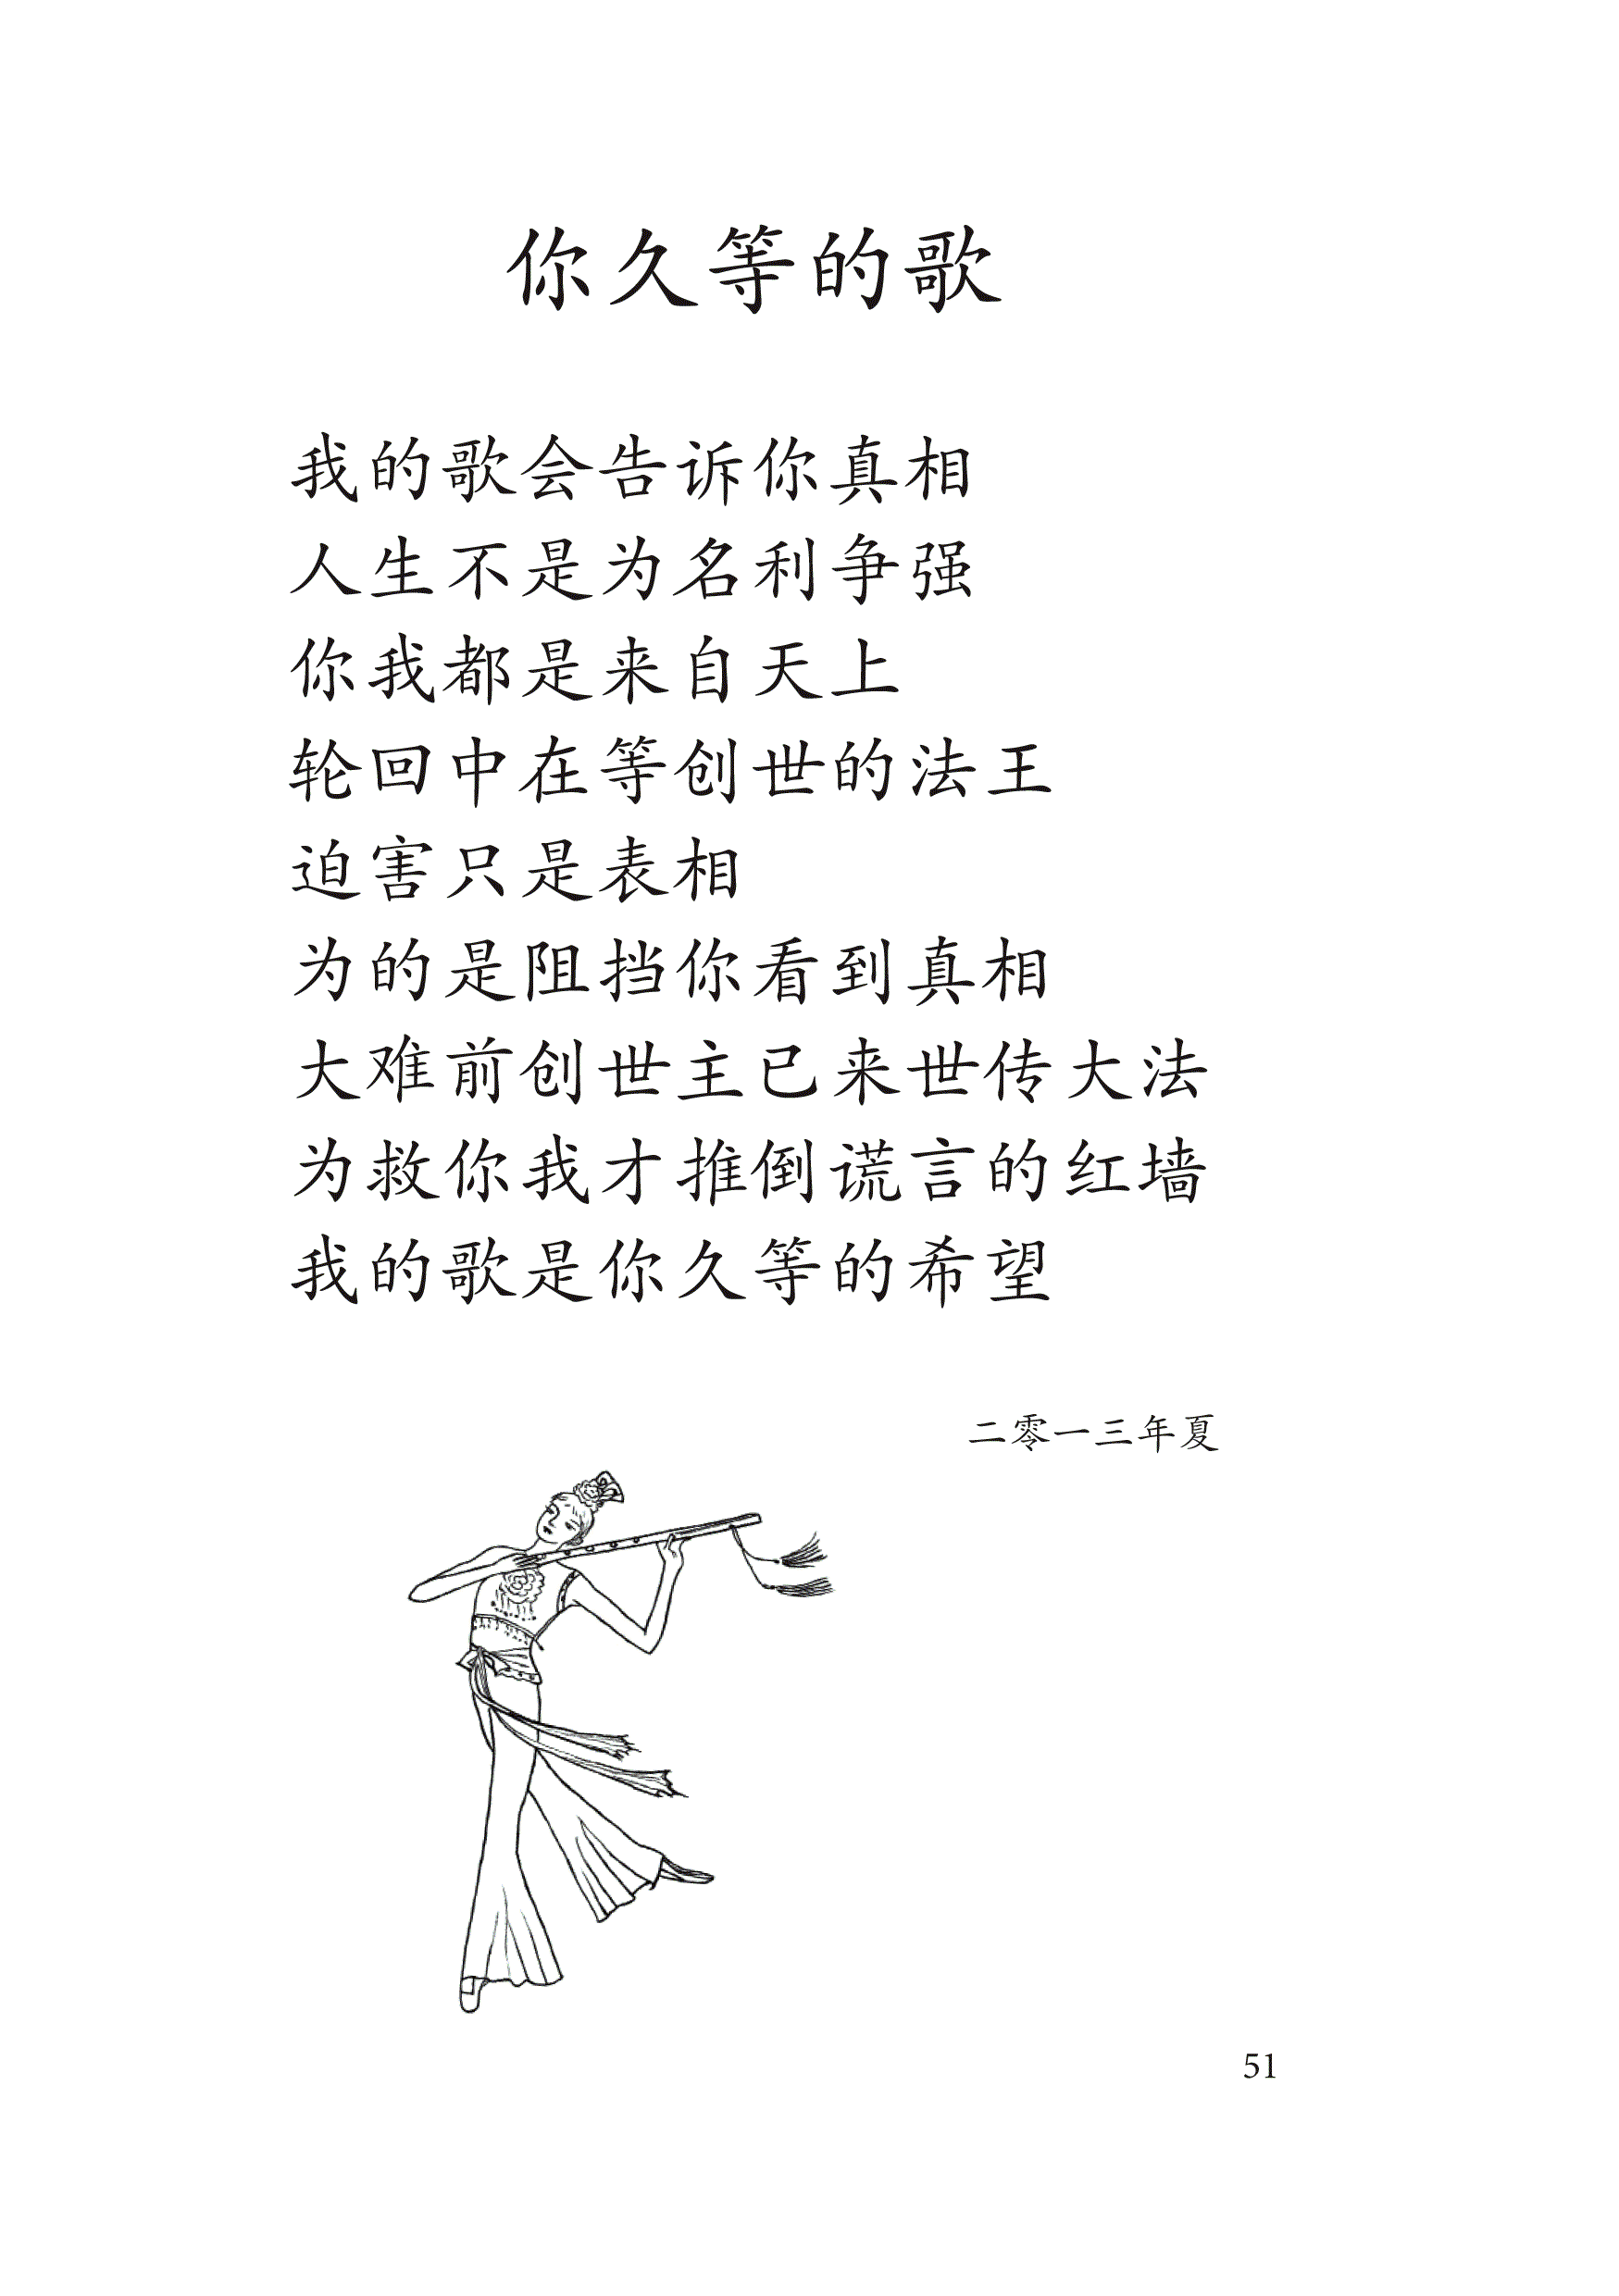 你久等的歌
我的歌会告诉你真相
人生不是为名利争强
你我都是来自天上
轮回中在等创世的法王
迫害只是表相
为的是阻挡你看到真相
大难前创世主已来世传大法
为救你我才推倒谎言的红墙
我的歌是你久等的希望
二零一三年夏
51